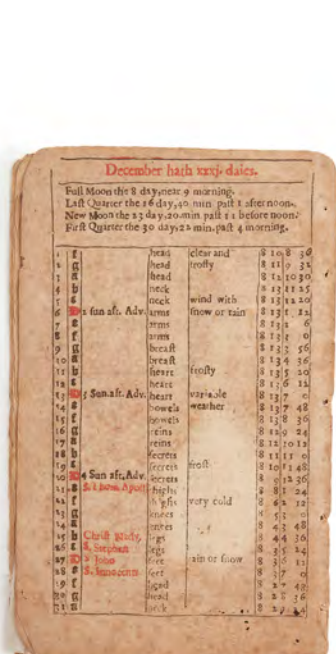 December hath xxxj. daies.
Full Moon the 8 day, near 9 morning.
Last Quarter the 16 day, 40 min. past 1 afternoon.
New Moon the 23 day, 20. min. past 11 before noon.
First Quarter the 30 day, 22 min. past 4 morning.
1 f head clear and 8 10 8 36
2 g head frosty 8 11 9 32
3 a head 8 12 10 30
4 b neck 8 13 11 25
5 c neck wind with 8 13 12 20
6 D 2 sun aft. Adv. arms snow or rain 8 13 1 12
7 e arms 8 13 2 6
8 f arms 8 13 3 0
9 g breast 8 13 3 56
10 a breast 8 13 4 36
11 b heart frosty 8 13 5 20
12 c heart 8 13 6 12
13 D 3 Sun. aft. Adv. heart variable 8 13 7 0
14 e bowels weather 8 13 7 48
15 f bowels 8 13 8 36
16 g reins 8 12 9 24
17 a reins 8 12 10 12
18 b secrets 8 11 11 0
19 c secrets frost 8 10 11 48
20 D 4 Sun aft. Adv. secrets 8 9 12 36
21 e S. Thom. Apost thighs 8 8 1 24
22 f thighs very cold 8 6 2 12
23 g knees 8 5 3 0
24 a knees 8 4 3 48
25 b Christ Nativ. legs 8 4 4 36
26 c S. Stephen legs 8 3 5 24
27 D S. John feet rain or snow 8 3 6 12
28 e S. Innocents feet 8 3 7 0
29 f head 8 2 7 48
30 g head 8 2 8 36
31 a neck 8 2 9 24